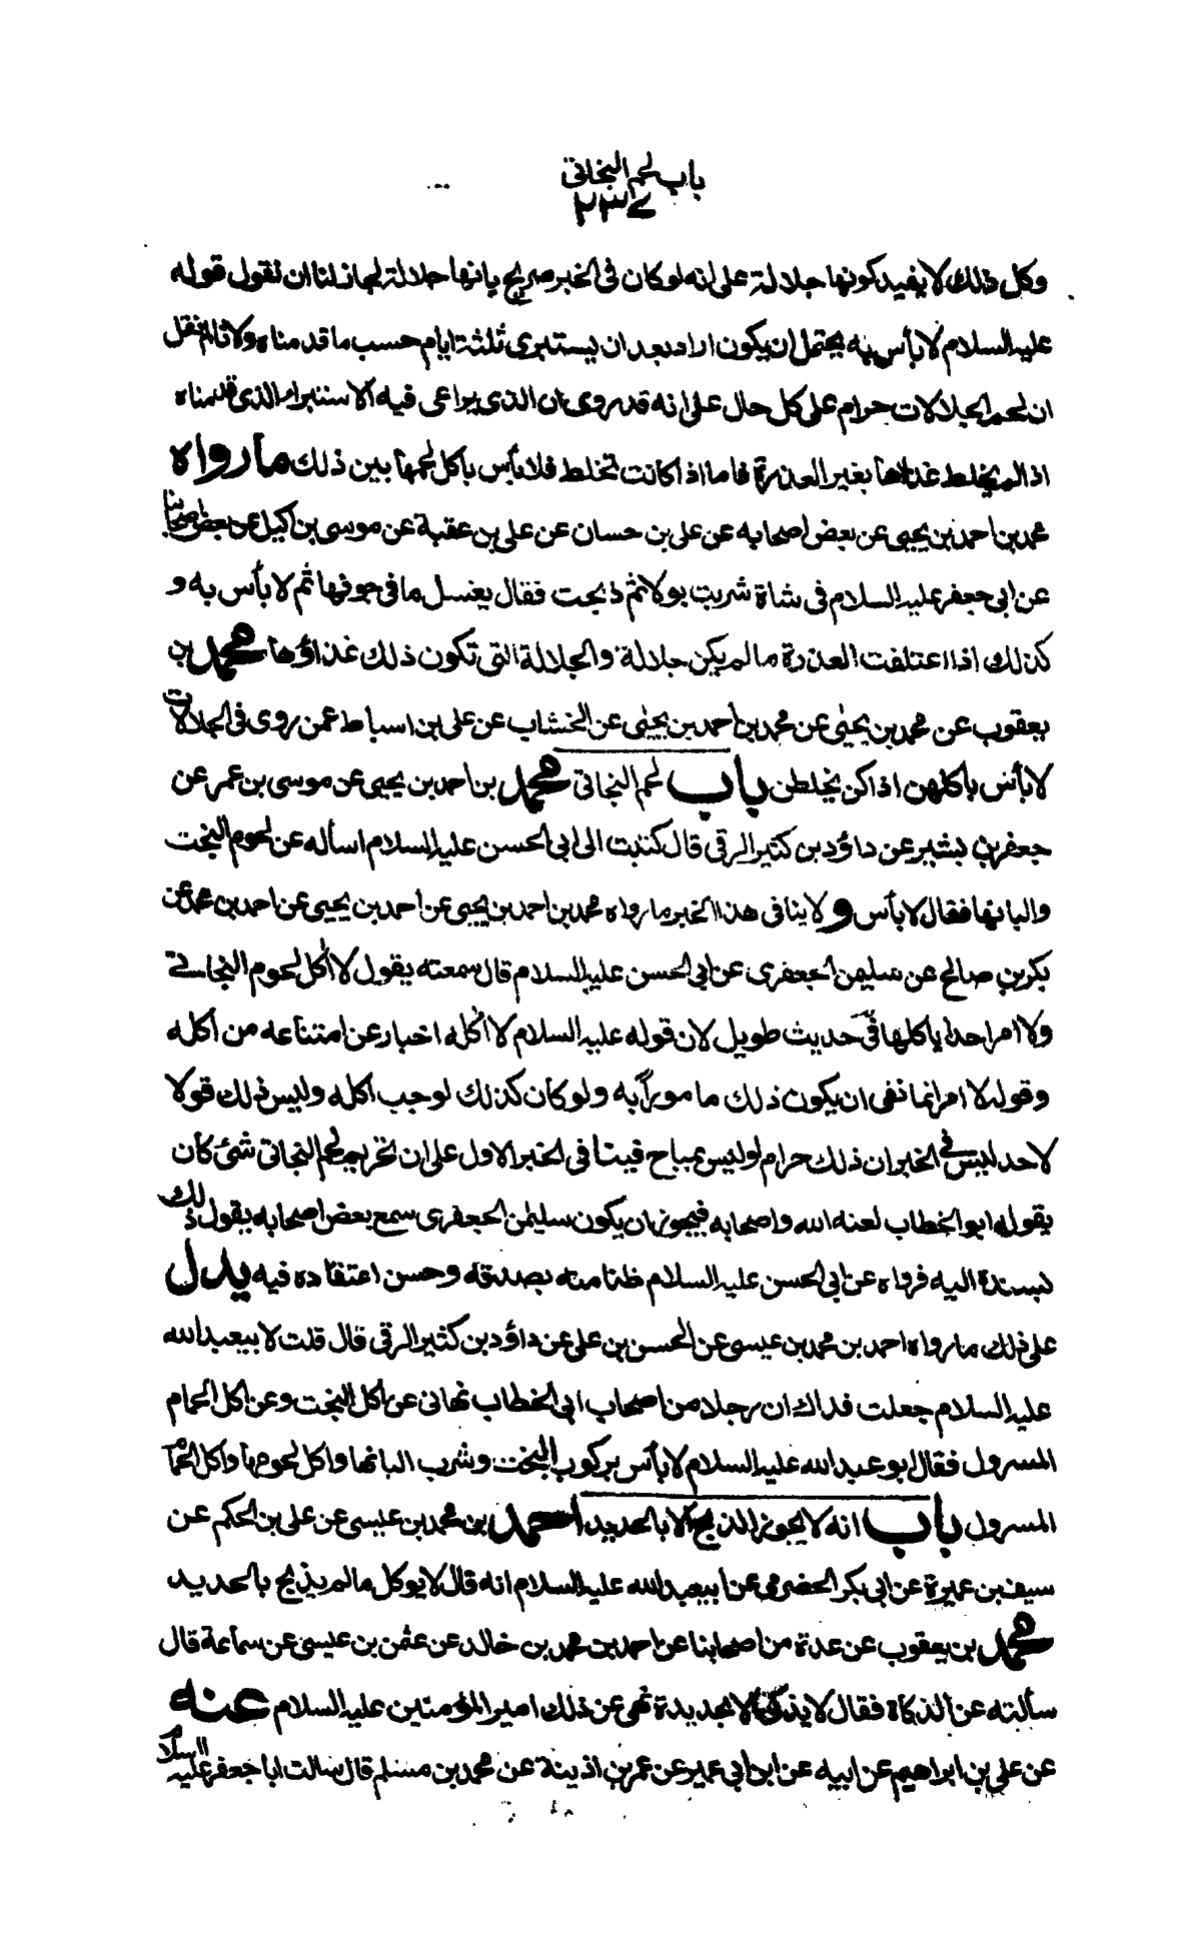 باب لحم البخاتي
٢٣٤
وكل ذلك لا يفيد كونها جلالة على انه لو كان في الخبر صريح بانها جلالة لجاز لنا ان نقول قوله
عليه السلام لا بأس به يحتمل ان يكون اراد بعد ان يستبرى ثلثة ايام حسب ما قدمناه ولانا لم نقل
ان لحم الجلالات حرام على كل حال على انه قد روى ان الذى يراعى فيه الاستبراء الذى قدمناه
اذا لم يخلط غذاءها بغير العذرة فاما اذا كانت تخلط فلا بأس باكل لحمها بين ذلك ما رواه
محمد بن احمد بن يحيى عن بعض اصحابه عن على بن حسان عن على بن عقبة عن موسى بن اكيل عن بعض اصحابنا
عن ابى جعفر عليه السلام فى شاة شربت بولا ثم ذبحت فقال يغسل ما فى جوفها ثم لا بأس به و
كذلك اذا اعتلفت العذرة ما لم يكن جلالة والجلالة التى تكون ذلك غذاؤها محمد بن
يعقوب عن محمد بن يحيى عن محمد بن احمد بن يحيى عن الخشاب عن على بن اسباط عمن روى فى الجلالات
لا بأس باكلهن اذا كن يخلطن باب لحم البخاتى محمد بن احمد بن يحيى عن موسى بن عمر عن
جعفر بن بشير عن داؤد بن كثير الرقى قال كتبت الى ابى الحسن عليه السلام اسأله عن لحوم البخت
والبانها فقال لا بأس و لا ينافى هذا الخبر ما رواه محمد بن احمد بن يحيى عن احمد بن يحيى عن احمد بن محمد عن
بكر بن صالح عن سليمن الجعفرى عن ابى الحسن عليه السلام قال سمعته يقول لا اكل لحوم البخاتى
ولا امر احدا ياكلها فى حديث طويل لان قوله عليه السلام لا اكله اخبار عن امتناعه من اكله
وقوله لا امر انما نفى ان يكون ذلك مامورا به ولو كان كذلك لوجب اكله وليس ذلك قولا
لاحد ليس فى الخبر ان ذلك حرام او ليس بمباح فينا فى الخبر الاول على ان تحريم لحم البخاتى شئ كان
يقوله ابو الخطاب لعنه الله واصحابه فيجوز ان يكون سليمن الجعفرى سمع بعض اصحابه يقول ذلك
لبسنده اليه فرواه عن ابى الحسن عليه السلام ظنا منه بصدقه وحسن اعتقاده فيه يدل
على ذلك ما رواه احمد بن محمد بن عيسى عن الحسن بن على عن داؤد بن كثير الرقى قال قلت لابيعبد الله
عليه السلام جعلت فداك ان رجلا من اصحاب ابى الخطاب نهانى عن اكل البخت وعن اكل الحمام
المسرول فقال ابو عبد الله عليه السلام لا بأس بركوب البخت وشرب البانها واكل لحومها واكل الحمام
المسرول باب انه لا يجوز الذبح الا بالحديد احمد بن محمد بن عيسى عن على بن الحكم عن
سيف بن عميرة عن ابى بكر الحضرمى عن ابيعبد الله عليه السلام انه قال لا يوكل ما لم يذبح بالحديد
محمد بن يعقوب عن عدة من اصحابنا عن احمد بن محمد بن خالد عن عثمن بن عيسى عن سماعة قال
سألته عن الذكاة فقال لا يذكى الا بحديدة نهى عن ذلك امير المؤمنين عليه السلام عنه
عن على بن ابراهيم عن ابيه عن ابن ابى عمير عن عمر بن اذينة عن محمد بن مسلم قال سالت ابا جعفر عليه السلام